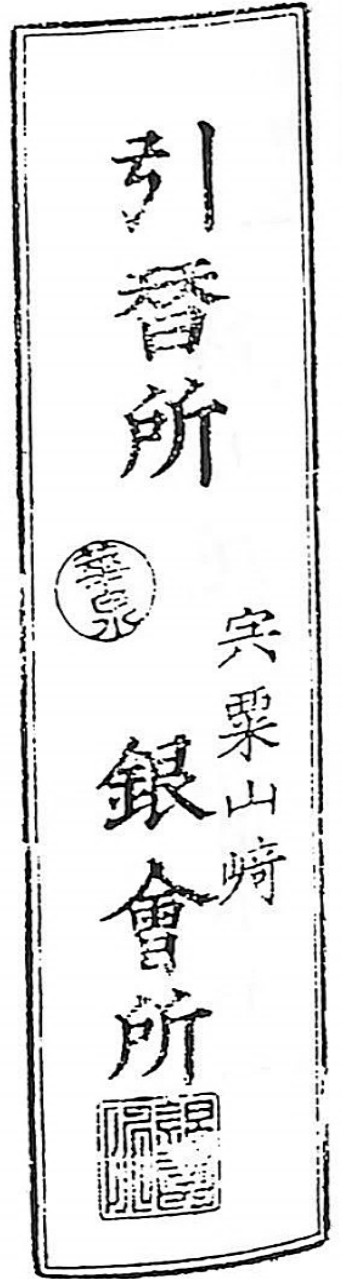 引替所
宍粟山崎
銀會所